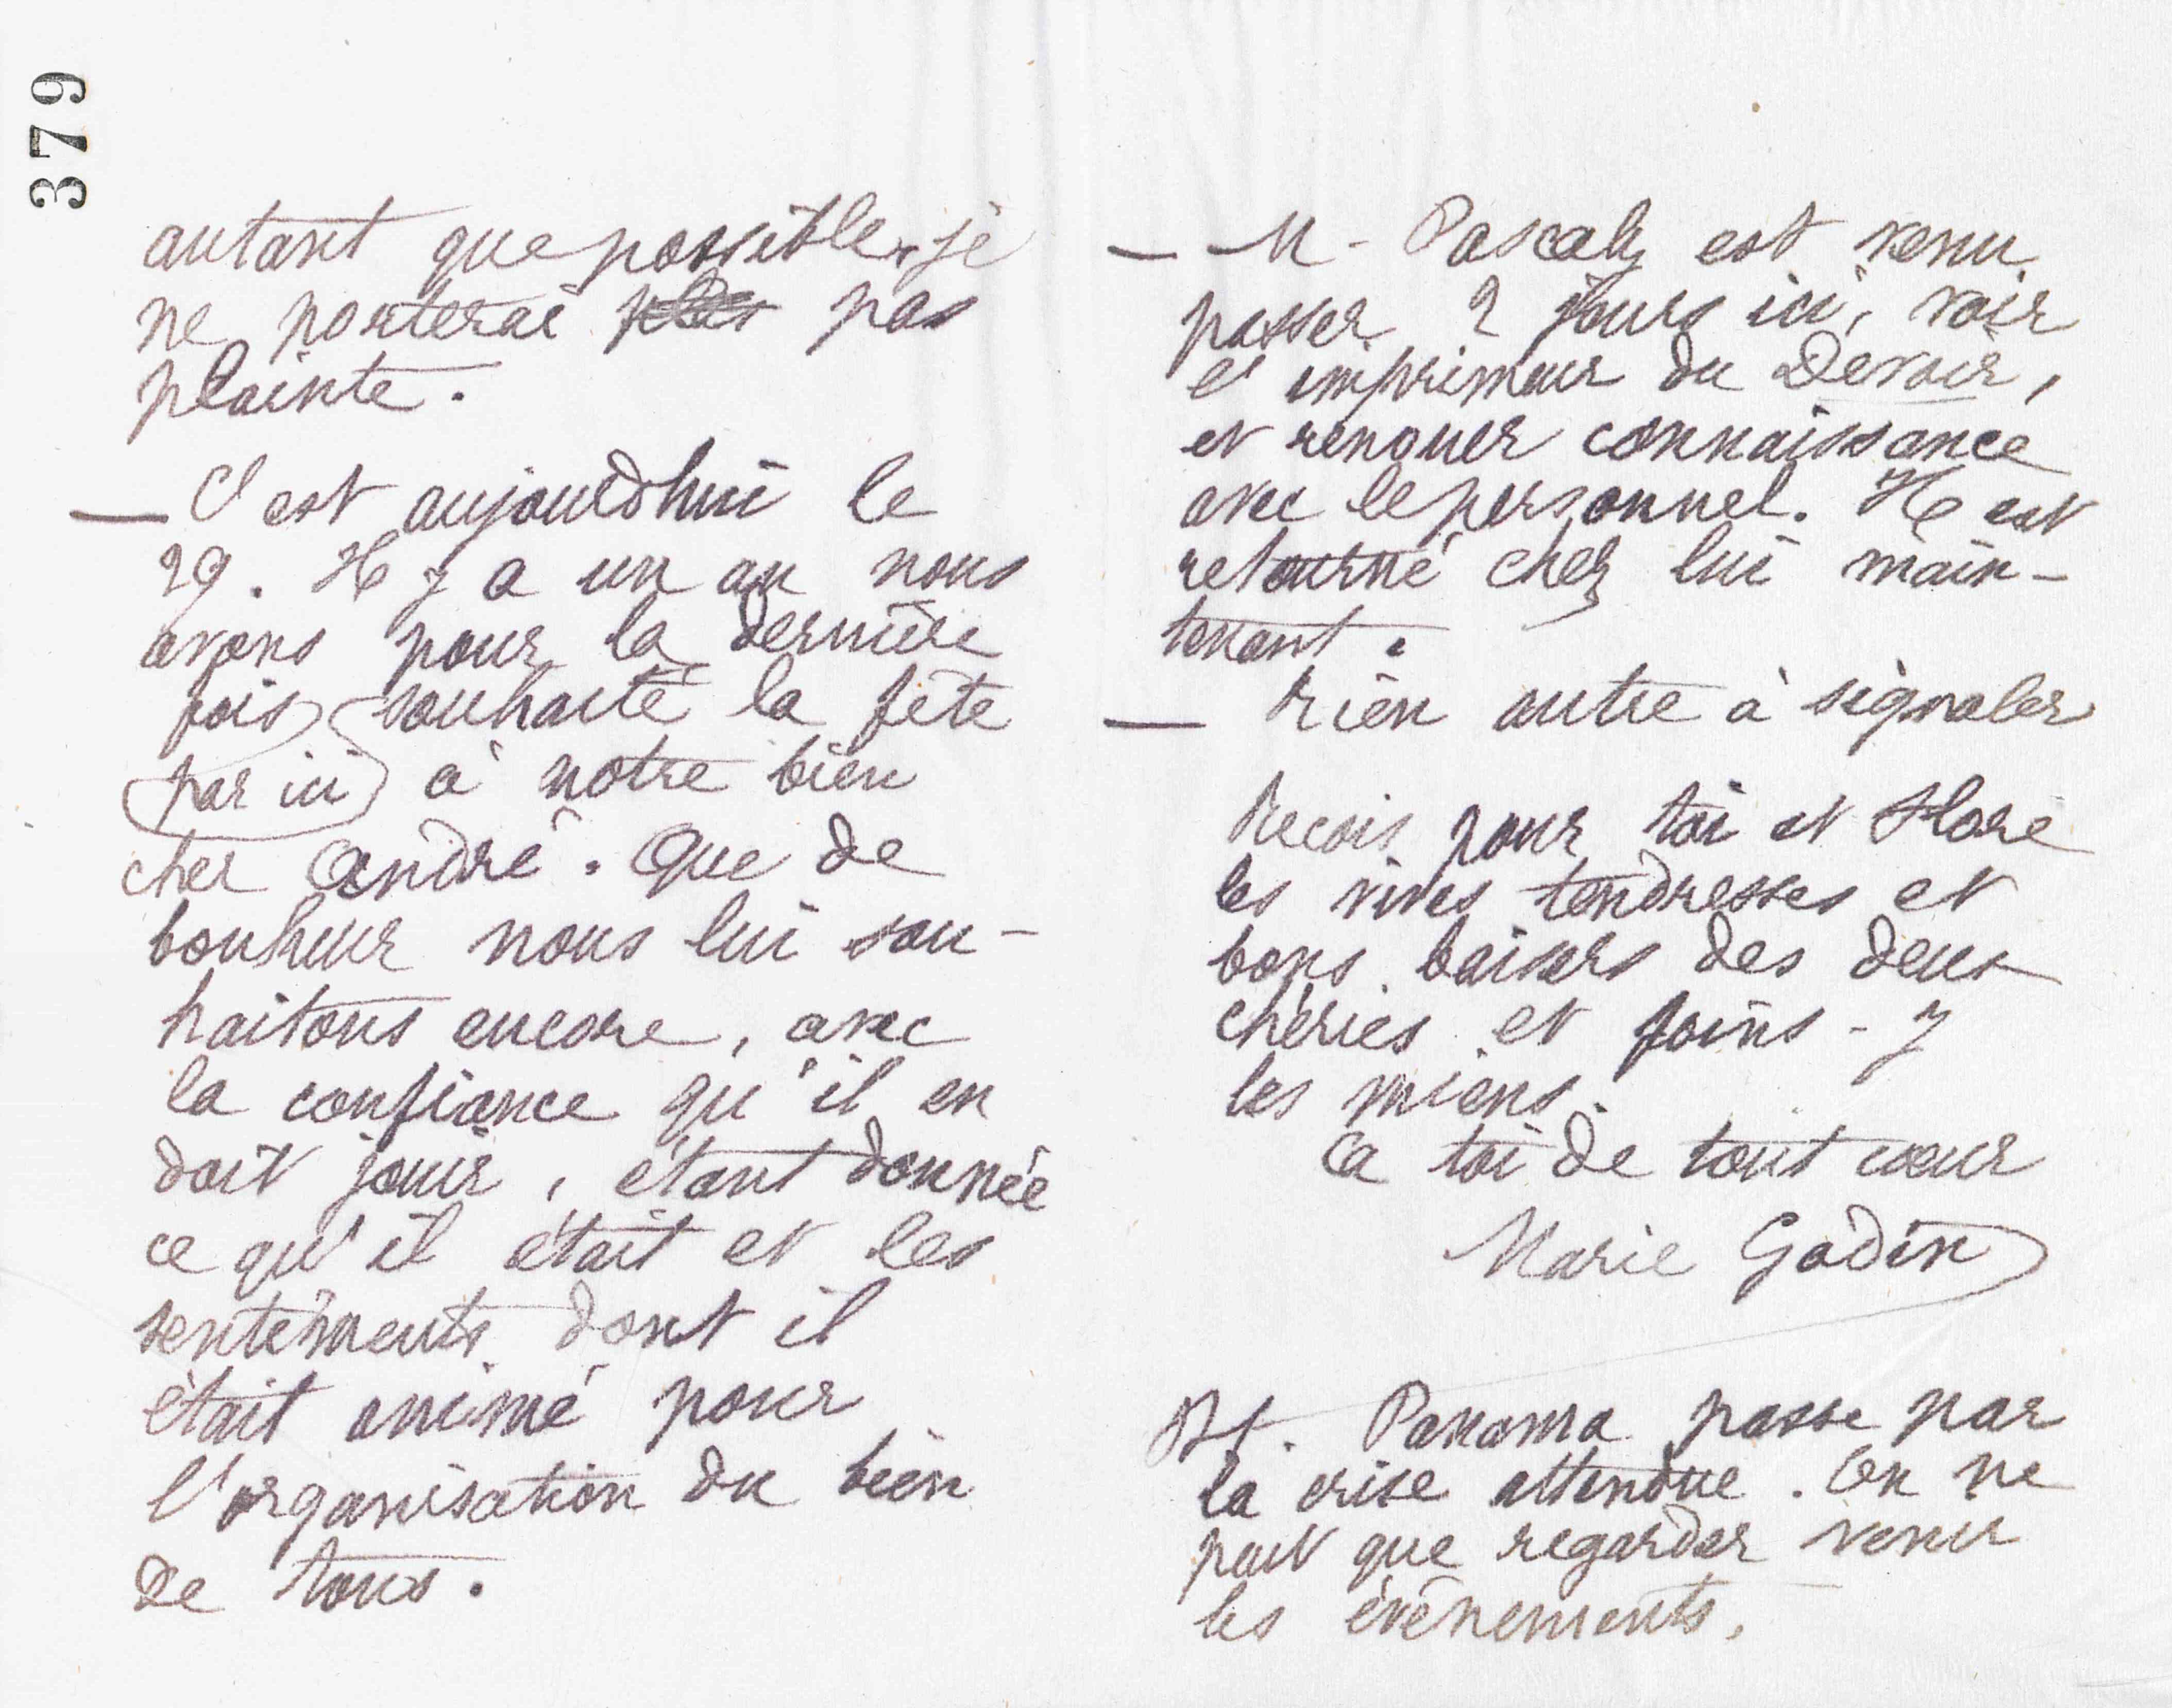 379
autant que possible, je
ne porterai plus pas
plainte.
— C'est aujourdhui le
29. Il y a un an nous
avons pour la dernière
fois souhaité la fête
par ici à notre bien
cher André. Que de
bonheur nous lui sou-
haitons encore, avec
la confiance qu'il en
doit jouir, étant donnée
ce qu'il était et les
sentiments dont il
était animé pour
l'organisation du bien
de tous.
— M. Pascaly est venu
passer 2 jours ici, voir
l'imprimeur du Devoir,
et renouer connaissance
avec le personnel. Il est
retourné chez lui main-
tenant.
— Rien autre à signaler
Recois pour toi et Flore
les vives tendresses et
bons baisers des deux
chéries et joins-y
les miens.
A toi de tout cœur
Marie Godin
Panama passe par
la crise attendue. On ne
peut que regarder venir
les événements.